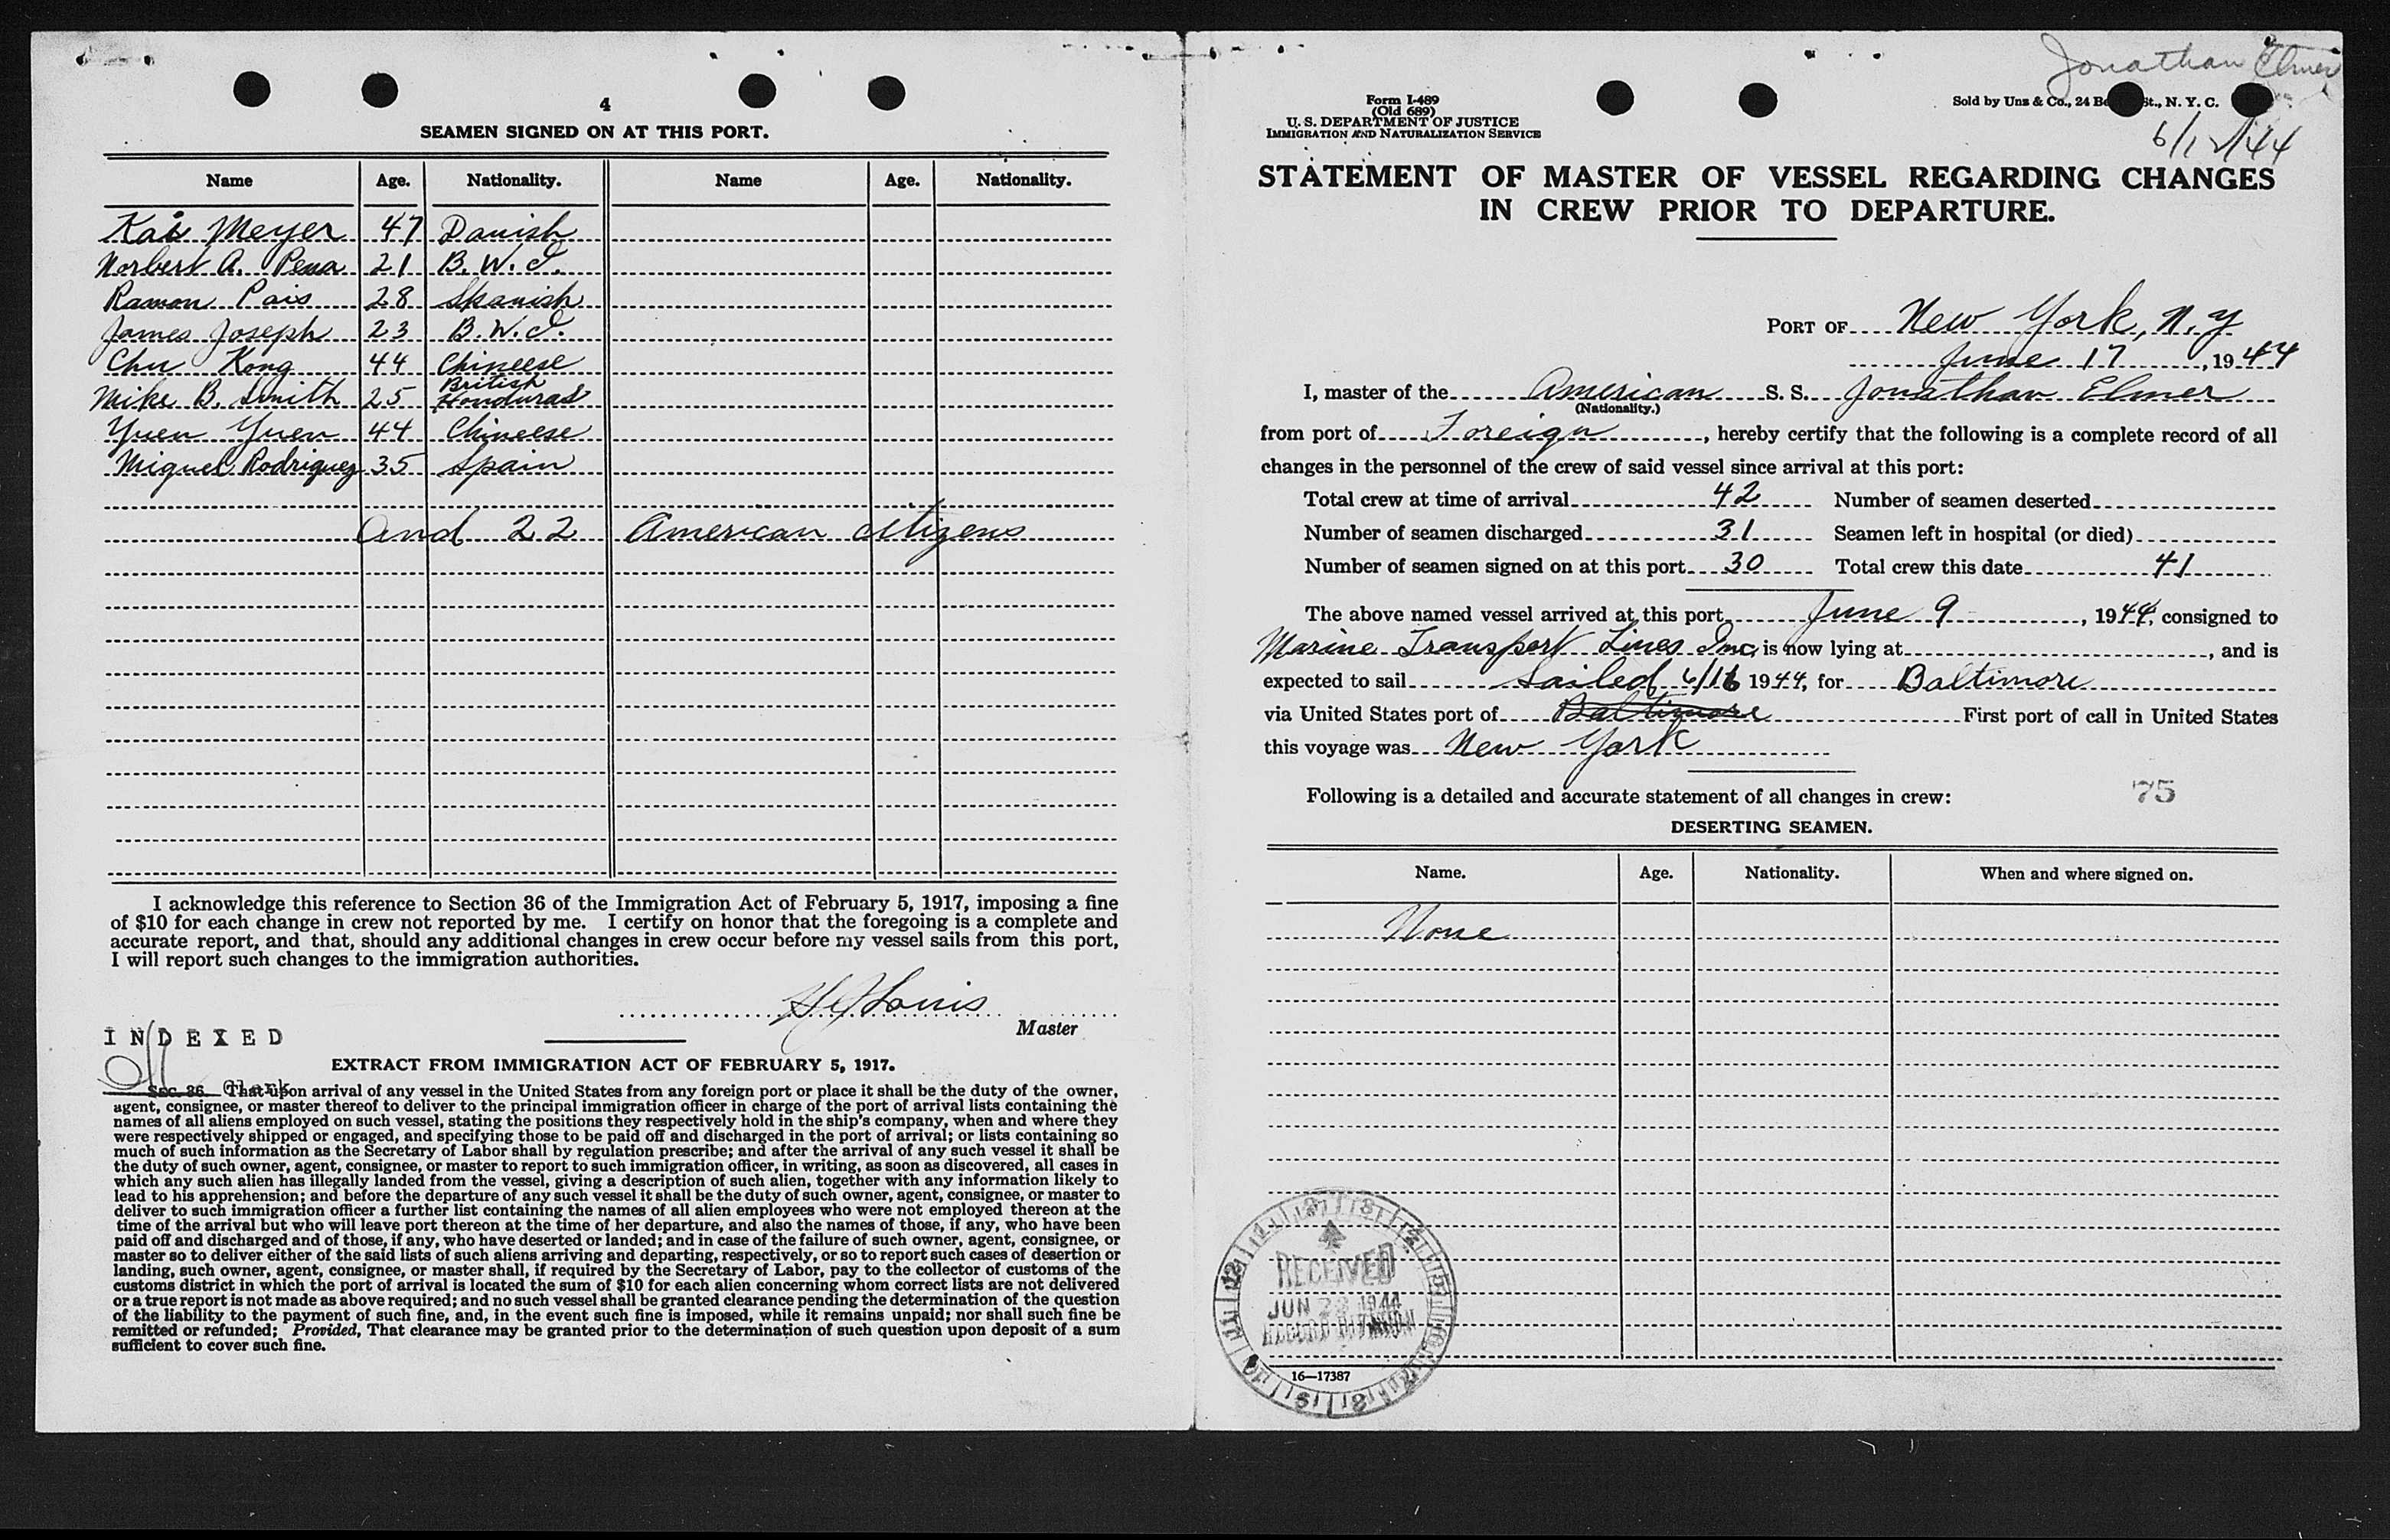 4
SEAMEN SIGNED ON AT THIS PORT.
Name Age. Nationality. Name Age. Nationality.
Kai Meyer 47 Danish
Norbert A. Pena 21 B. W. I.
Ramon Pais 28 Spanish
James Joseph 23 B. W. I.
Chu Kong 44 Chineese
Mike B. Smith 25 British Honduras
Yuen Yuen 44 Chineese
Miguel Rodriguez 35 Spain
and 22 American citizens
I acknowledge this reference to Section 36 of the Immigration Act of February 5, 1917, imposing a fine
of $10 for each change in crew not reported by me. I certify on honor that the foregoing is a complete and
accurate report, and that, should any additional changes in crew occur before my vessel sails from this port,
I will report such changes to the immigration authorities.
Master
INDEXED
Clerk
EXTRACT FROM IMMIGRATION ACT OF FEBRUARY 5, 1917.
SEC. 36. That upon arrival of any vessel in the United States from any foreign port or place it shall be the duty of the owner,
agent, consignee, or master thereof to deliver to the principal immigration officer in charge of the port of arrival lists containing the
names of all aliens employed on such vessel, stating the positions they respectively hold in the ship's company, when and where they
were respectively shipped or engaged, and specifying those to be paid off and discharged in the port of arrival; or lists containing so
much of such information as the Secretary of Labor shall by regulation prescribe; and after the arrival of any such vessel it shall be
the duty of such owner, agent, consignee, or master to report to such immigration officer, in writing, as soon as discovered, all cases in
which any such alien has illegally landed from the vessel, giving a description of such alien, together with any information likely to
lead to his apprehension; and before the departure of any such vessel it shall be the duty of such owner, agent, consignee, or master to
deliver to such immigration officer a further list containing the names of all alien employees who were not employed thereon at the
time of the arrival but who will leave port thereon at the time of her departure, and also the names of those, if any, who have been
paid off and discharged and of those, if any, who have deserted or landed; and in case of the failure of such owner, agent, consignee, or
master so to deliver either of the said lists of such aliens arriving and departing, respectively, or so to report such cases of desertion or
landing, such owner, agent, consignee, or master shall, if required by the Secretary of Labor, pay to the collector of customs of the
customs district in which the port of arrival is located the sum of $10 for each alien concerning whom correct lists are not delivered
or a true report is not made as above required; and no such vessel shall be granted clearance pending the determination of the question
of the liability to the payment of such fine, and, in the event such fine is imposed, while it remains unpaid; nor shall such fine be
remitted or refunded; Provided, That clearance may be granted prior to the determination of such question upon deposit of a sum
sufficient to cover such fine.
Jonathan Elmer
Form I-489
(Old 689)
U. S. DEPARTMENT OF JUSTICE
IMMIGRATION AND NATURALIZATION SERVICE
Sold by Uns & Co., 24 St., N. Y. C.
STATEMENT OF MASTER OF VESSEL REGARDING CHANGES
IN CREW PRIOR TO DEPARTURE.
PORT OF New York, N. Y
June 17, 1944
I, master of the American S. S. Jonathan Elmer
(Nationality.)
from port of Foreign, hereby certify that the following is a complete record of all
changes in the personnel of the crew of said vessel since arrival at this port:
Total crew at time of arrival 42 Number of seamen deserted
Number of seamen discharged 31 Seamen left in hospital (or died)
Number of seamen signed on at this port 30 Total crew this date 41
The above named vessel arrived at this port June 9, 1944, consigned to
Marine Transport Lines Inc, is now lying at, and is
expected to sail Sailed 6/16 1944, for Baltimore
via United States port of Baltimore First port of call in United States
this voyage was New York
Following is a detailed and accurate statement of all changes in crew:
75
DESERTING SEAMEN.
Name. Age. Nationality. When and where signed on.
None
RECEIVED
JUN 1944
RECORD DIVISION
16—17387